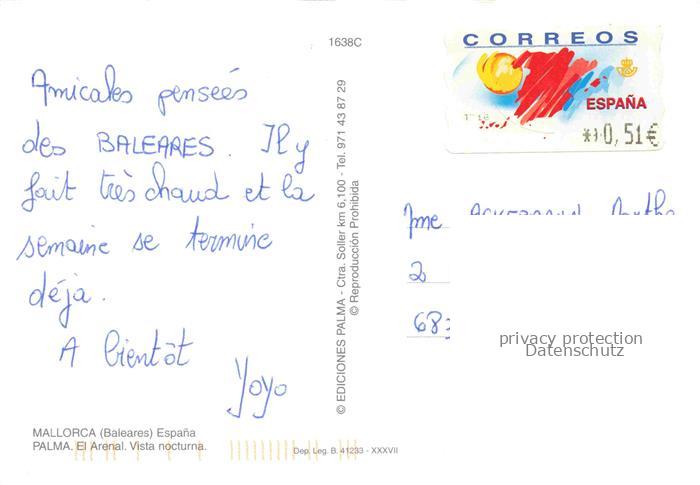 1638C
CORREOS
ESPAÑA
**0,51€
Amicales pensées
des BALEARES. Il y
fait très chaud et la
semaine se termine
déja.
A bientôt
Yoyo
© EDICIONES PALMA - Ctra. Soller km 6,100 - Tel. 971 43 87 29
© Reproducción Prohibida
Mme
2
68
privacy protection
Datenschutz
MALLORCA (Baleares) España
PALMA. El Arenal. Vista nocturna.
Dep. Leg. B. 41233 - XXXVII